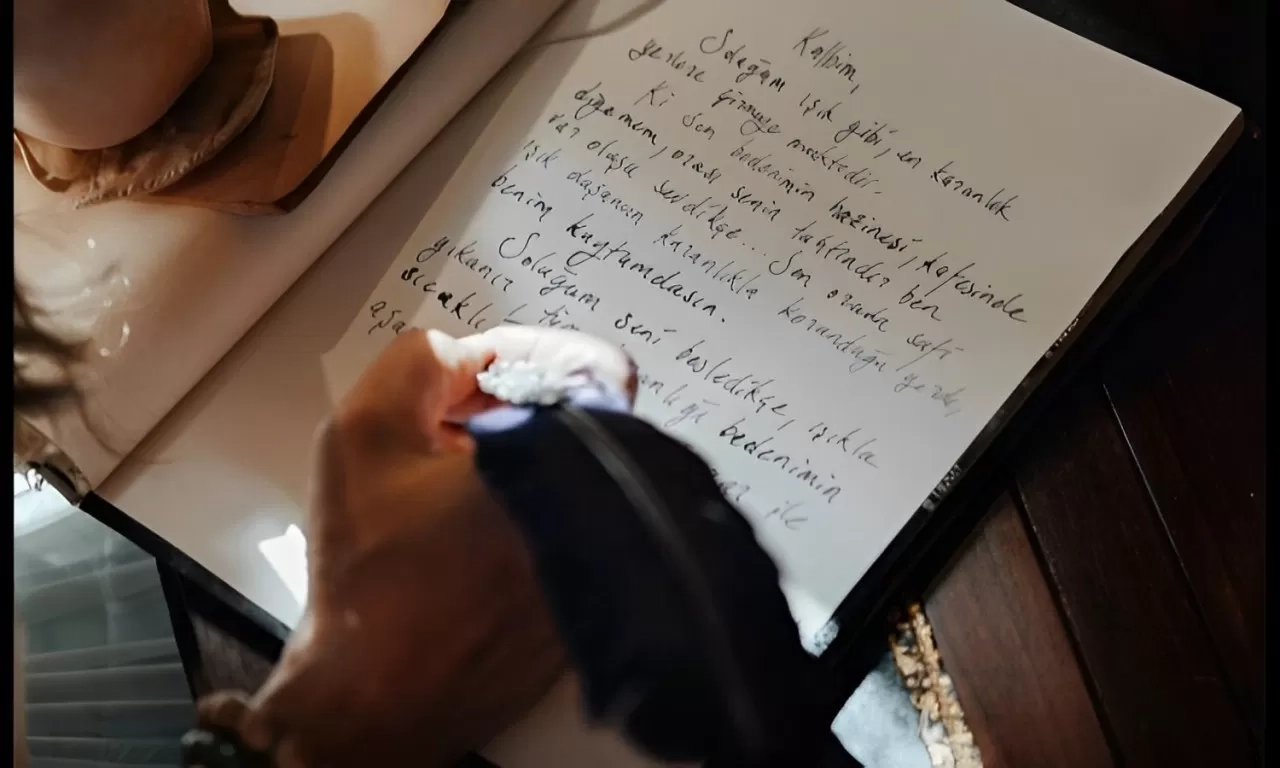 Kalbim,
Soluğum ışık gibi, en karanlık
yerlere girmeye mektedir.
Ki sen bedenimin hazinesi, kafesinde
diyemem, orası senin tahtındır ben
var oluşu sevdikçe... Sen orada safi
ışık daşanan karanlıkla korunduğu yerde,
benim kuytumdasın.
Soluğum seni besledikçe, ışıkla
yıkanır bedenimin
sıcaklı
ile